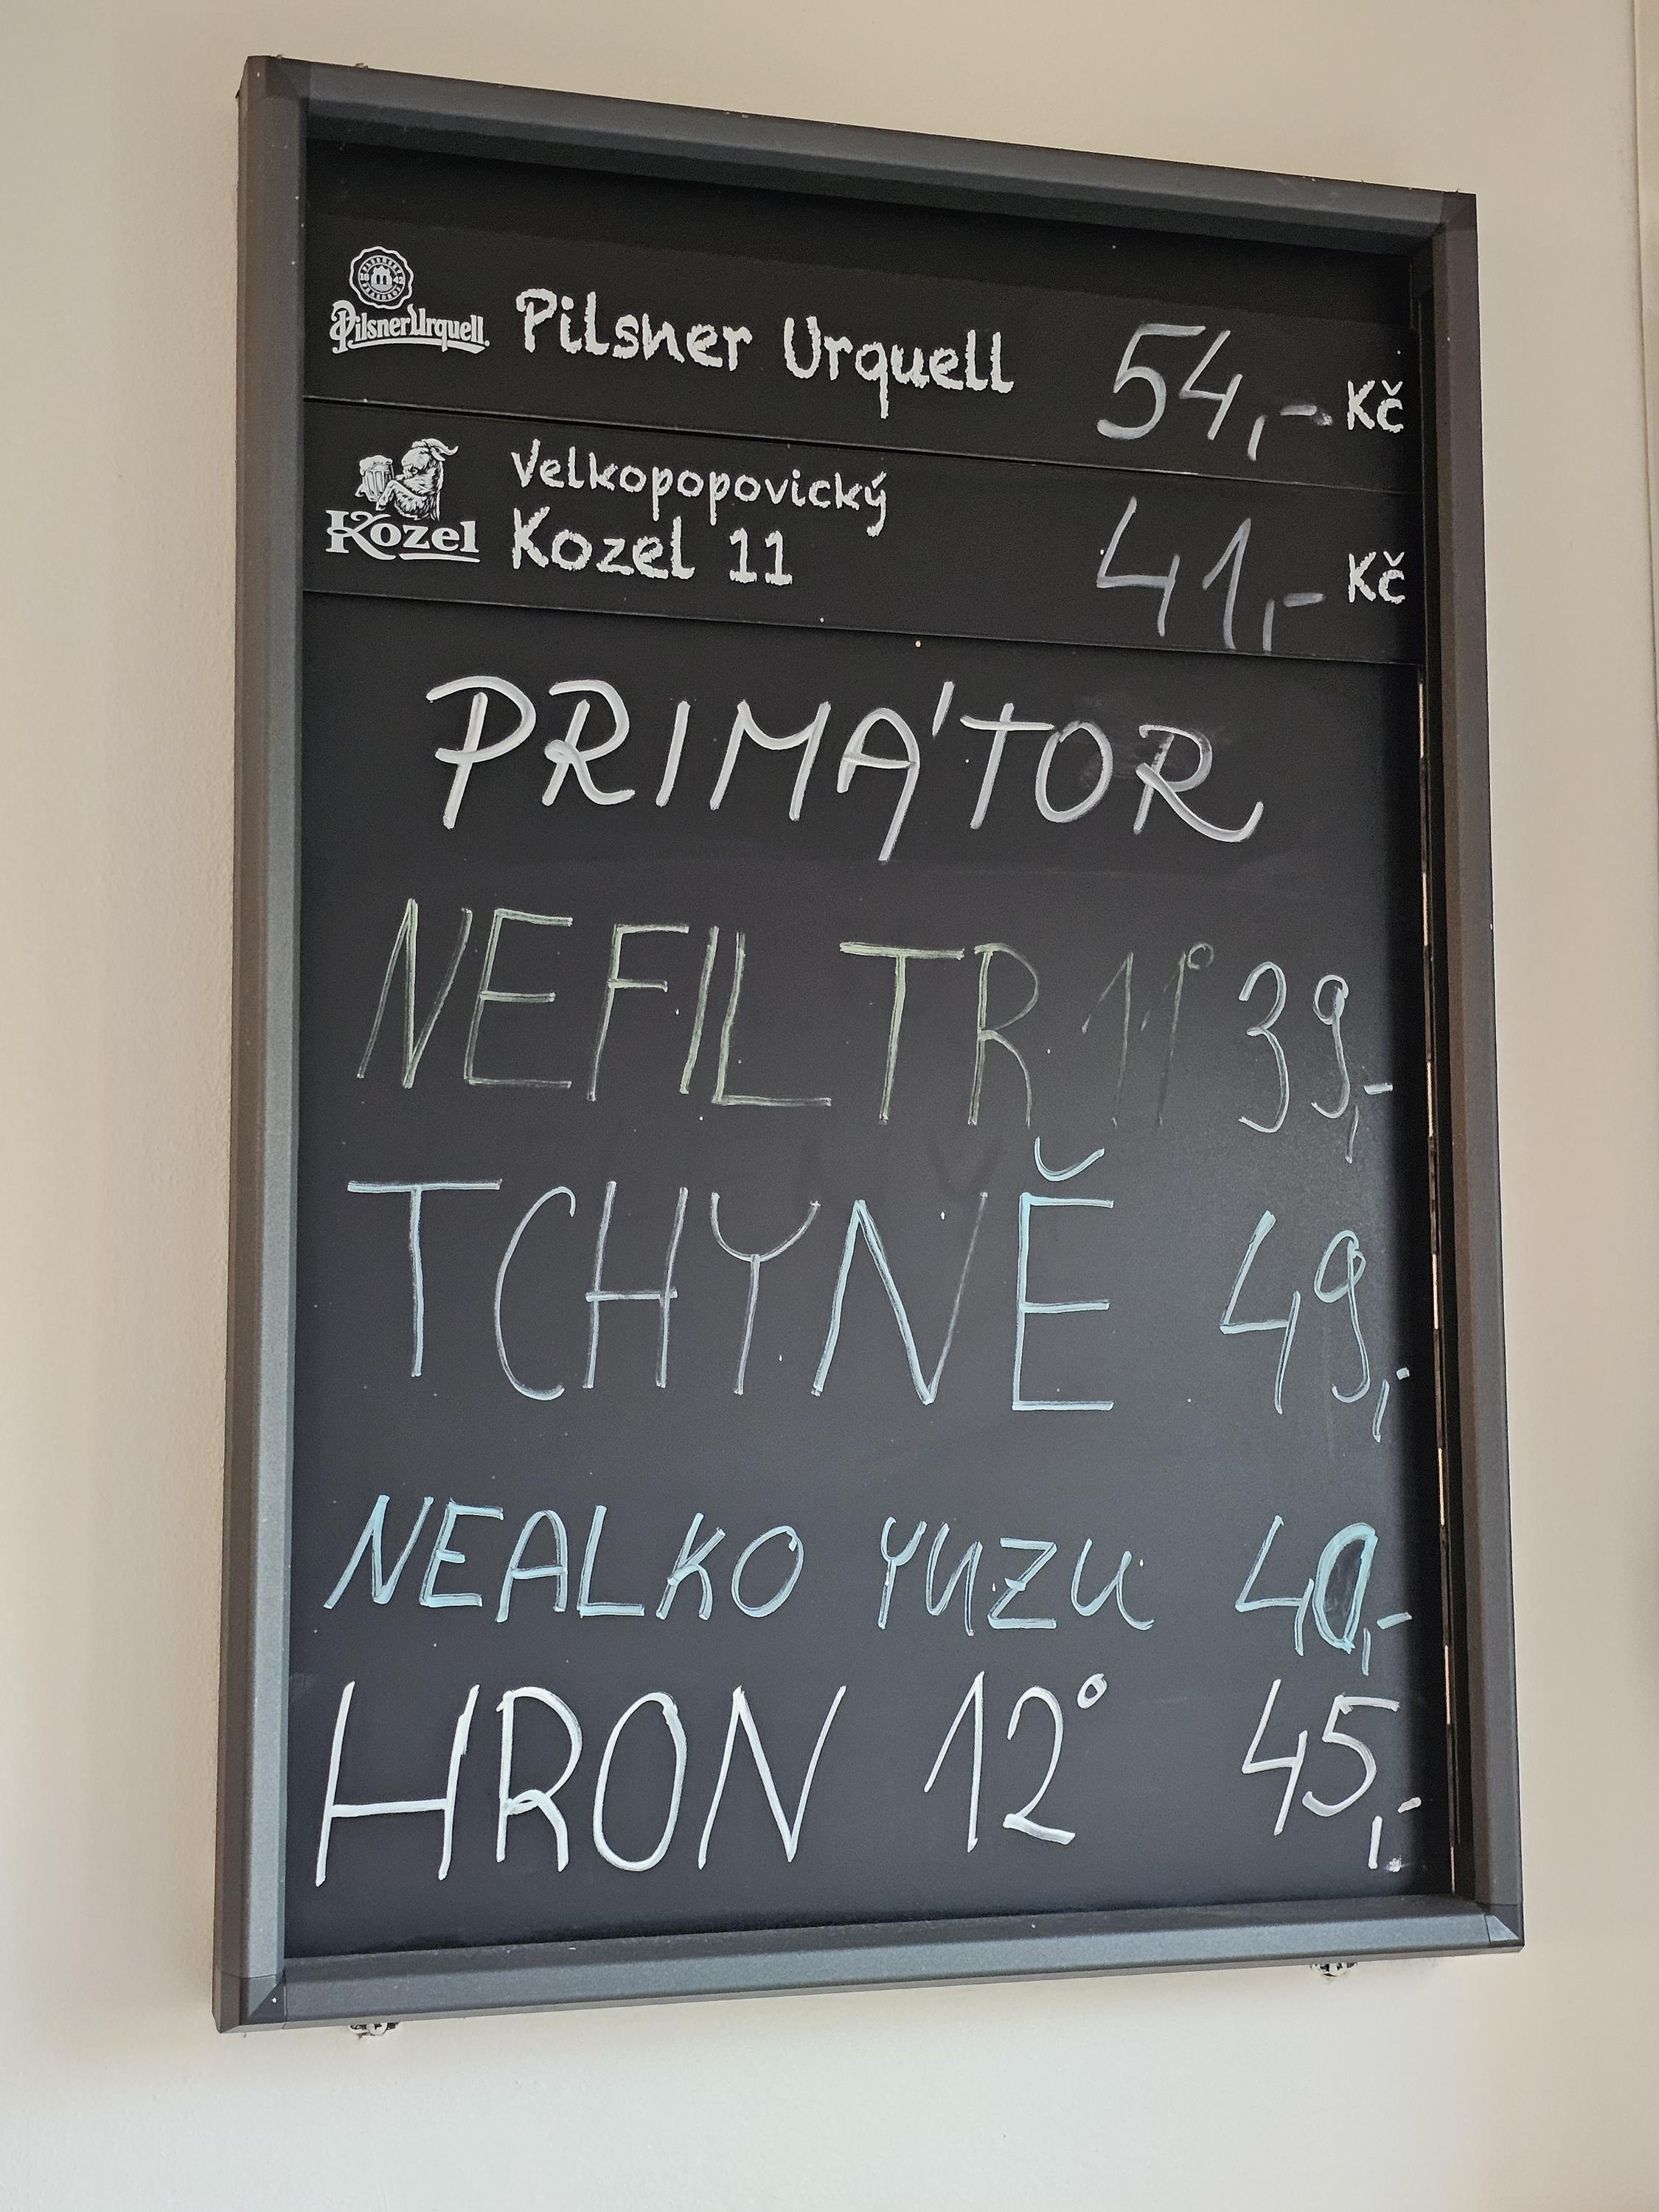 Pilsner Urquell
Pilsner Urquell 54,- Kč
Kozel
Velkopopovický
Kozel 11 41,- Kč
PRIMÁTOR
NEFILTR 11° 39,-
TCHYNĚ 49,-
NEALKO YUZU 40,-
HRON 12° 45,-